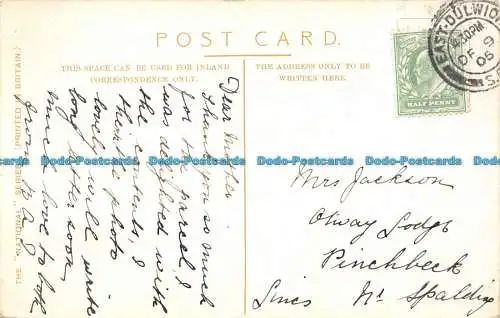 POST CARD.
THIS SPACE CAN BE USED FOR INLAND
CORRESPONDENCE ONLY.
THE ADDRESS ONLY TO BE
WRITTEN HERE.
THE "NATIONAL" SERIES
(PRINTED IN BRITAIN.)
EAST-DULWIC
4.30PM
DE 9
05
S.
HALF PENNY
Dear Mother
Thank you so much
for the parcel, I
was delighted with
the contents, I
think the photo
lovely will write
long letter soon,
much love to both
from
Mrs Jackson
Otway Lodge
Pinchbeck
Lincs Nr Spalding
Dodo-Postcards Dodo-Postcards Dodo-Postcards Dodo-Postcards Dodo-Postcards